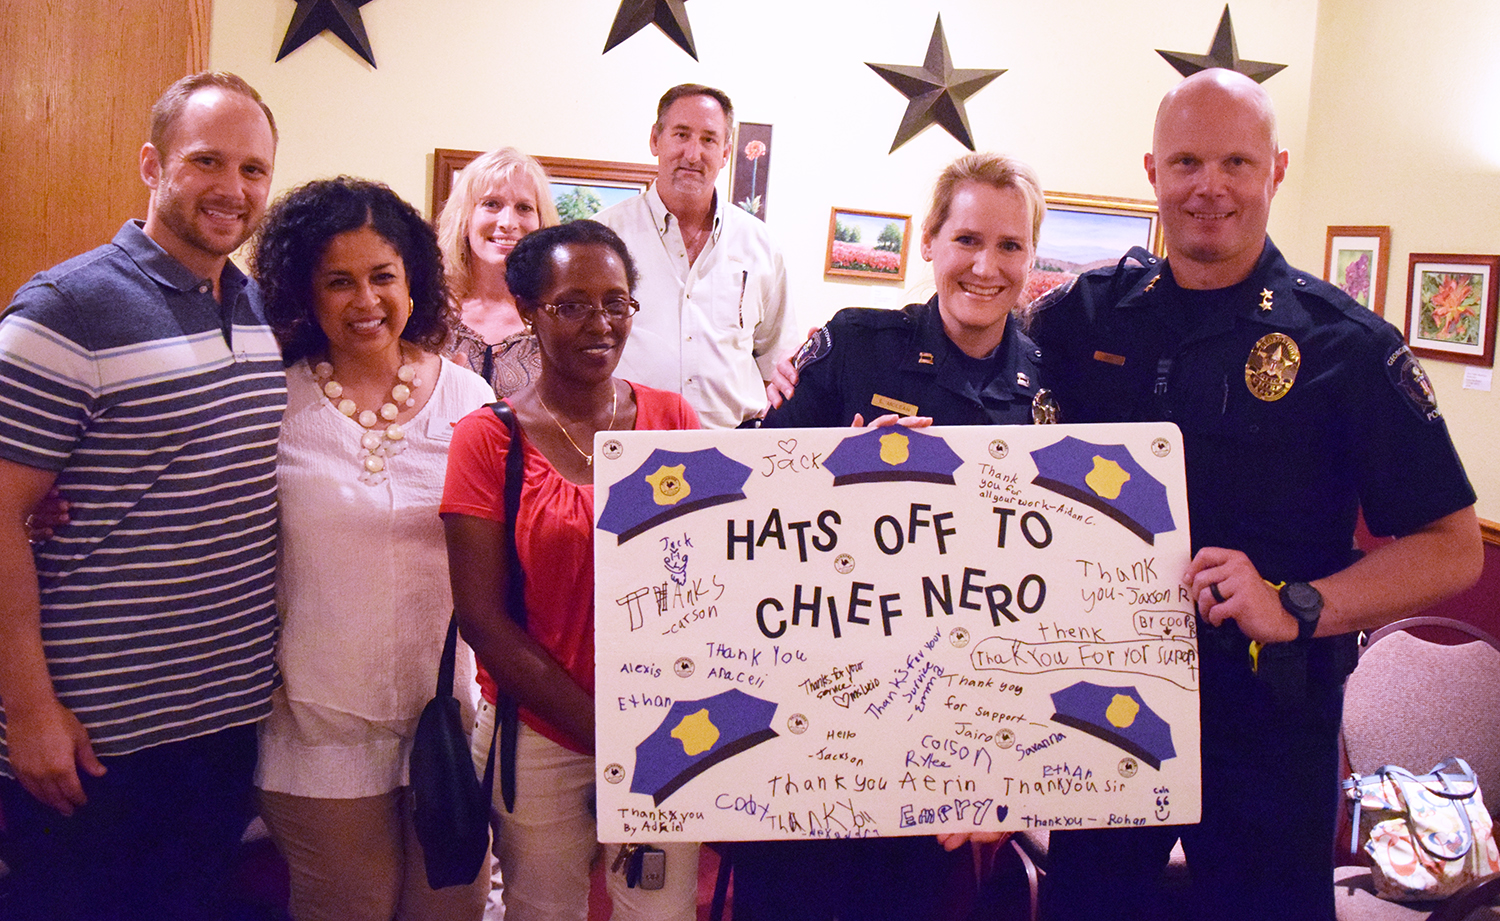 Jack
Thank
you for
all your work - Aidan C.
HATS OFF TO
CHIEF NERO
Jack
Thanks
-carson
Thank
you - Jaxson R
BY COOPER
thenk
ThaKYOU FOR YOR SUPORT
Alexis
THank You
Araceli
Thanks for your
service
Thank's For your
Survice
-Emma
Ethan
Thank you
for support -
Jairo
Hello
-Jackson
Colson
Rylee
Savanna
EthAn
Thank you Aerin
Thankyou sir
Cody
THANK YOU
-Alexandra
Emery
Thankyou - Rohan
Cole
Thank you
By Adriel